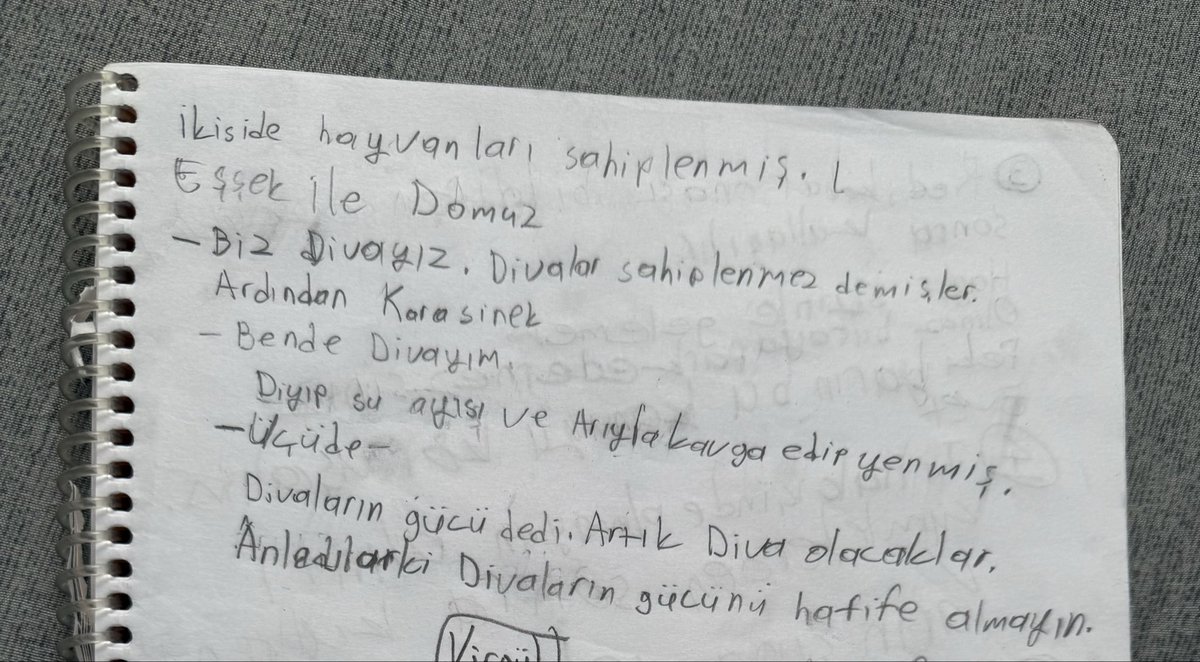 ikiside hayvanları sahiplenmiş. L
Eşşek ile Domuz
- Biz Divayız. Divalar sahiplenmez demişler.
Ardından Karasinek
- Bende Divayım.
Diyip su ayısı ve Arıyla kavga edip yenmiş.
- Üçüde -
Divaların gücü dedi. Artık Diva olacaklar.
Anladılarki Divaların gücünü hafife almayın.